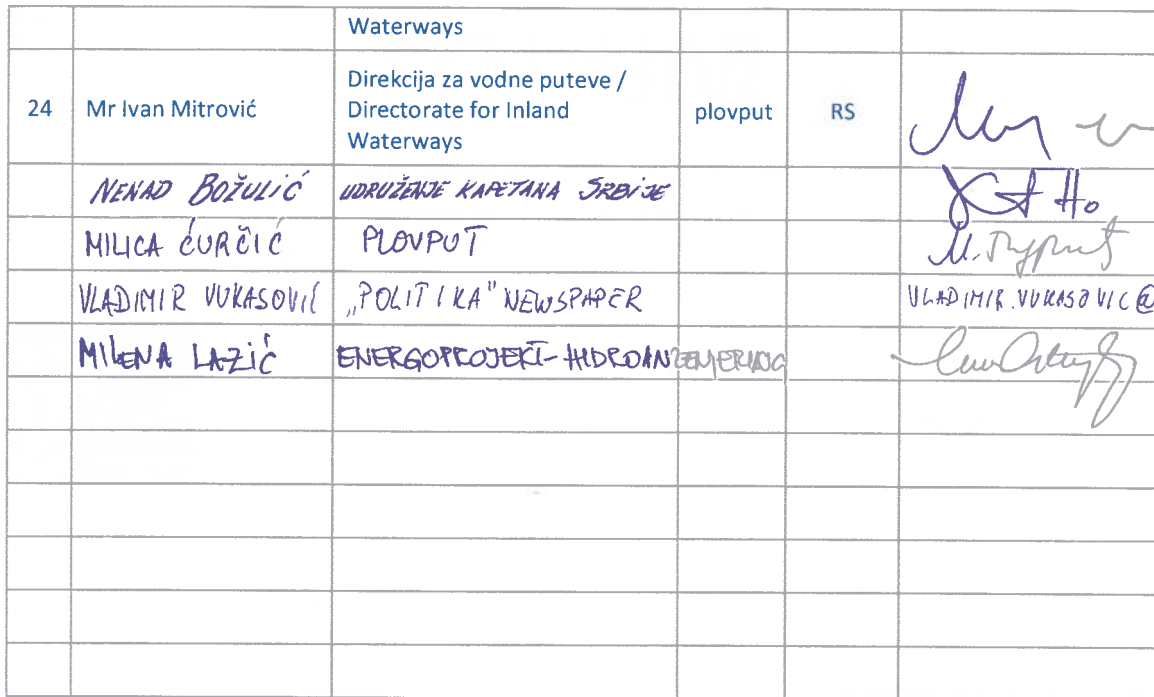 Waterways
24 Mr Ivan Mitrović Direkcija za vodne puteve / Directorate for Inland Waterways plovput RS
NENAD BOŽULIĆ UDRUŽENJE KAPETANA SRBIJE
MILICA ĆURČIĆ PLOVPUT
VLADIMIR VUKASOVIĆ „POLITIKA" NEWSPAPER VLADIMIR.VUKASOVIC@
MILENA LAZIĆ ENERGOPROJEKT-HIDROINŽENJERING